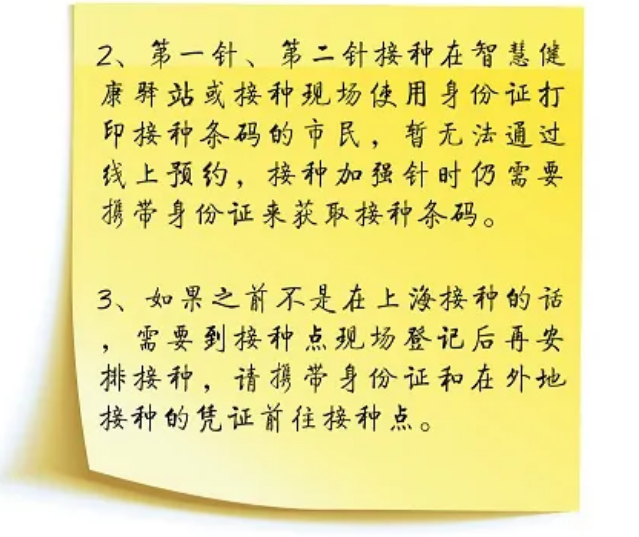 2、第一针、第二针接种在智慧健
康驿站或接种现场使用身份证打
印接种条码的市民，暂无法通过
线上预约，接种加强针时仍需要
携带身份证来获取接种条码。
3、如果之前不是在上海接种的话
，需要到接种点现场登记后再安
排接种，请携带身份证和在外地
接种的凭证前往接种点。